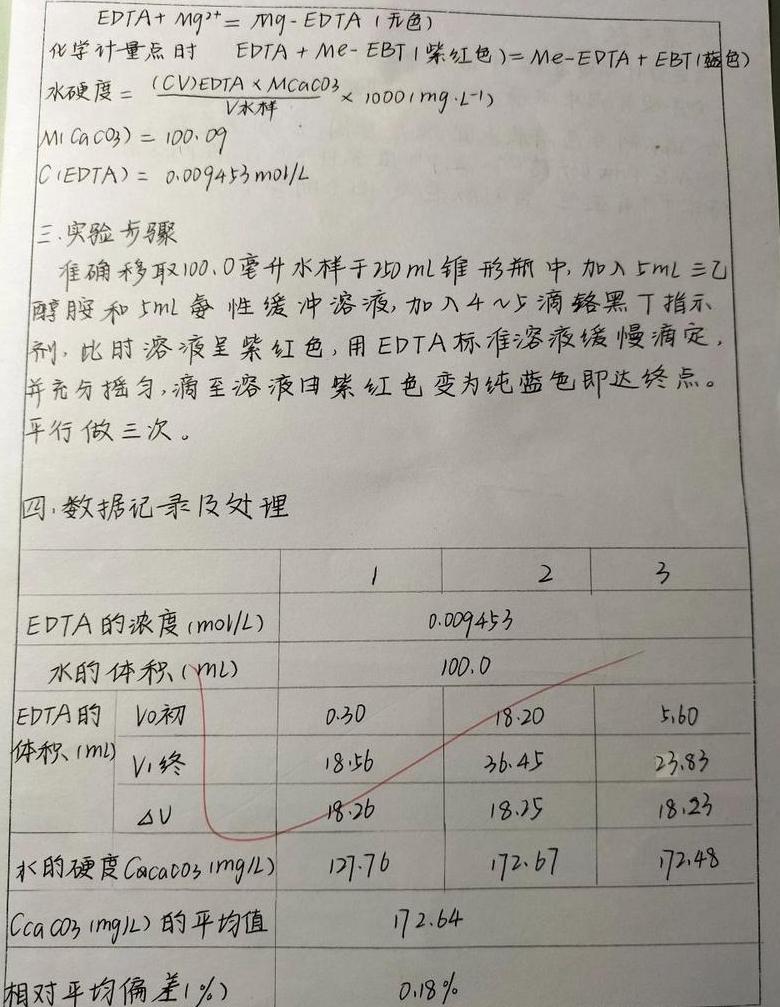 EDTA + Mg²⁺ = Mg-EDTA (无色)
化学计量点时 EDTA + Me-EBT (紫红色) = Me-EDTA + EBT (蓝色)
水硬度 = (CV)EDTA × MCaCO3 / V水样 × 1000 (mg·L⁻¹)
M(CaCO3) = 100.09
C(EDTA) = 0.009453 mol/L
三.实验步骤
准确移取100.0毫升水样于250mL锥形瓶中,加入5mL三乙
醇胺和5mL氨性缓冲溶液,加入4~5滴铬黑T指示
剂,此时溶液呈紫红色,用EDTA标准溶液缓慢滴定,
并充分摇匀,滴至溶液由紫红色变为纯蓝色即达终点。
平行做三次。
四.数据记录及处理
1 2 3
EDTA的浓度(mol/L) 0.009453
水的体积(mL) 100.0
EDTA的体积(mL) V0初 0.30 18.20 5.60
V1终 18.56 36.45 23.83
ΔV 18.26 18.25 18.23
水的硬度CaCaCO3(mg/L) 127.76 172.67 172.48
CCaCO3(mg/L)的平均值 172.64
相对平均偏差(%) 0.18%